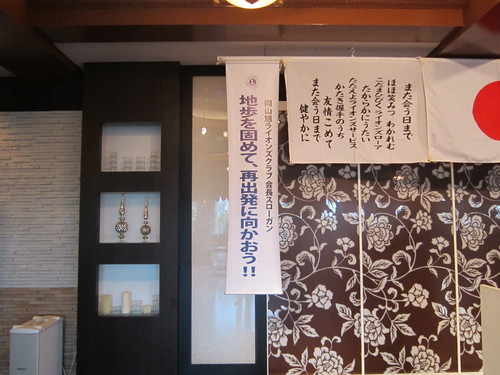 また会う日まで
ほほ笑みつ わかれむ
こだまひびくライオンズローア
たからかにうたい
たたえよライオンズサービス
かたき握手のうち
友情こめて
また会う日まで
健やかに
岡山旭ライオンズクラブ 会長スローガン
地歩を固めて、再出発に向かおう!!